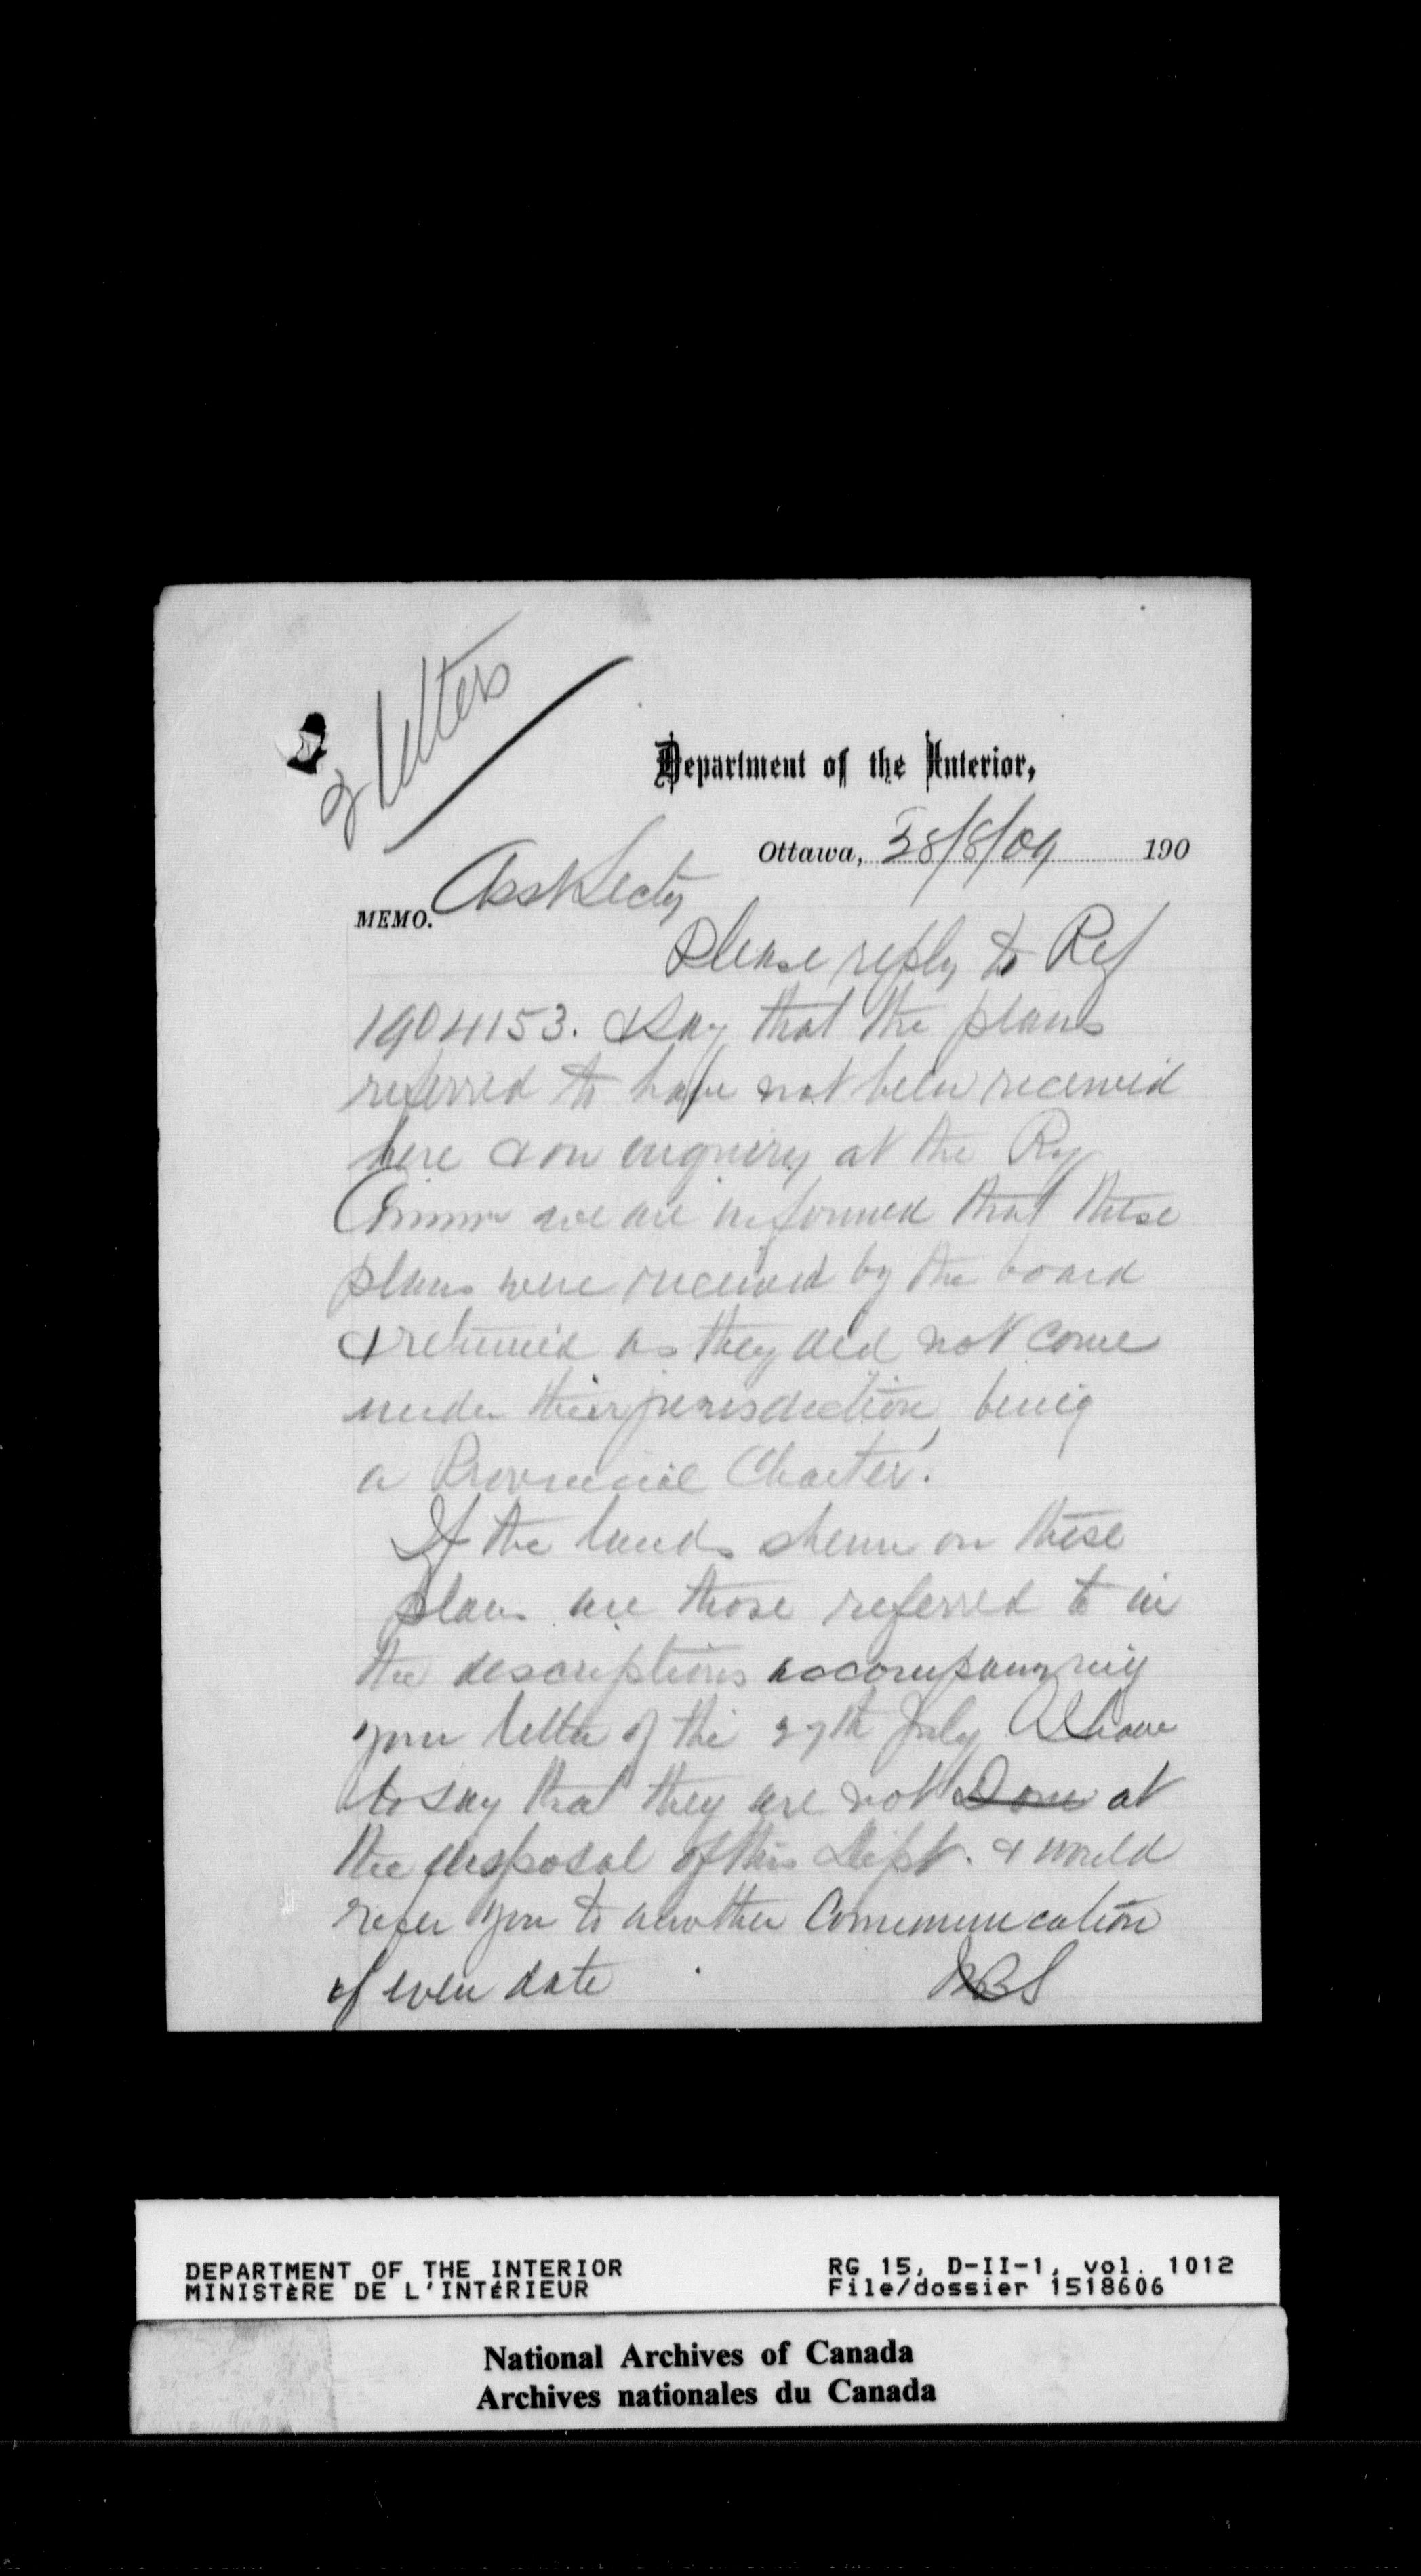 2 letters
Department of the Interior,
Ottawa, 28/8/09 190
MEMO. Asst Secty
Please reply to Ref
1904153. & Say that the plans
referred to have not been received
here & on enquiry at the Ry
Commn we are informed that these
plans were received by the board
& returned as they did not come
under their jurisdiction, being
a Provincial Charter.
If the lands shewn on these
plans are those referred to in
the descriptions accompanying
your letter of the 27th July I have
to say that they are not Dom at
the disposal of this Dept. & would
refer you to another Communication
of even date
DEPARTMENT OF THE INTERIOR
MINISTÈRE DE L'INTÉRIEUR
RG 15, D-II-1, vol. 1012
File/dossier 1518606
National Archives of Canada
Archives nationales du Canada